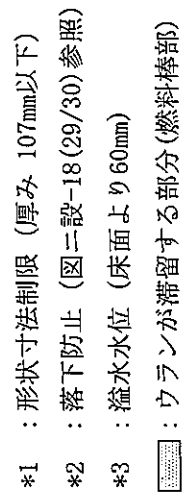 *1 : 形状寸法制限 (厚み 107mm以下)
*2 : 落下防止 (図ニ設-18(29/30)参照)
*3 : 溢水水位 (床面より60mm)
: ウランが滞留する部分(燃料棒部)